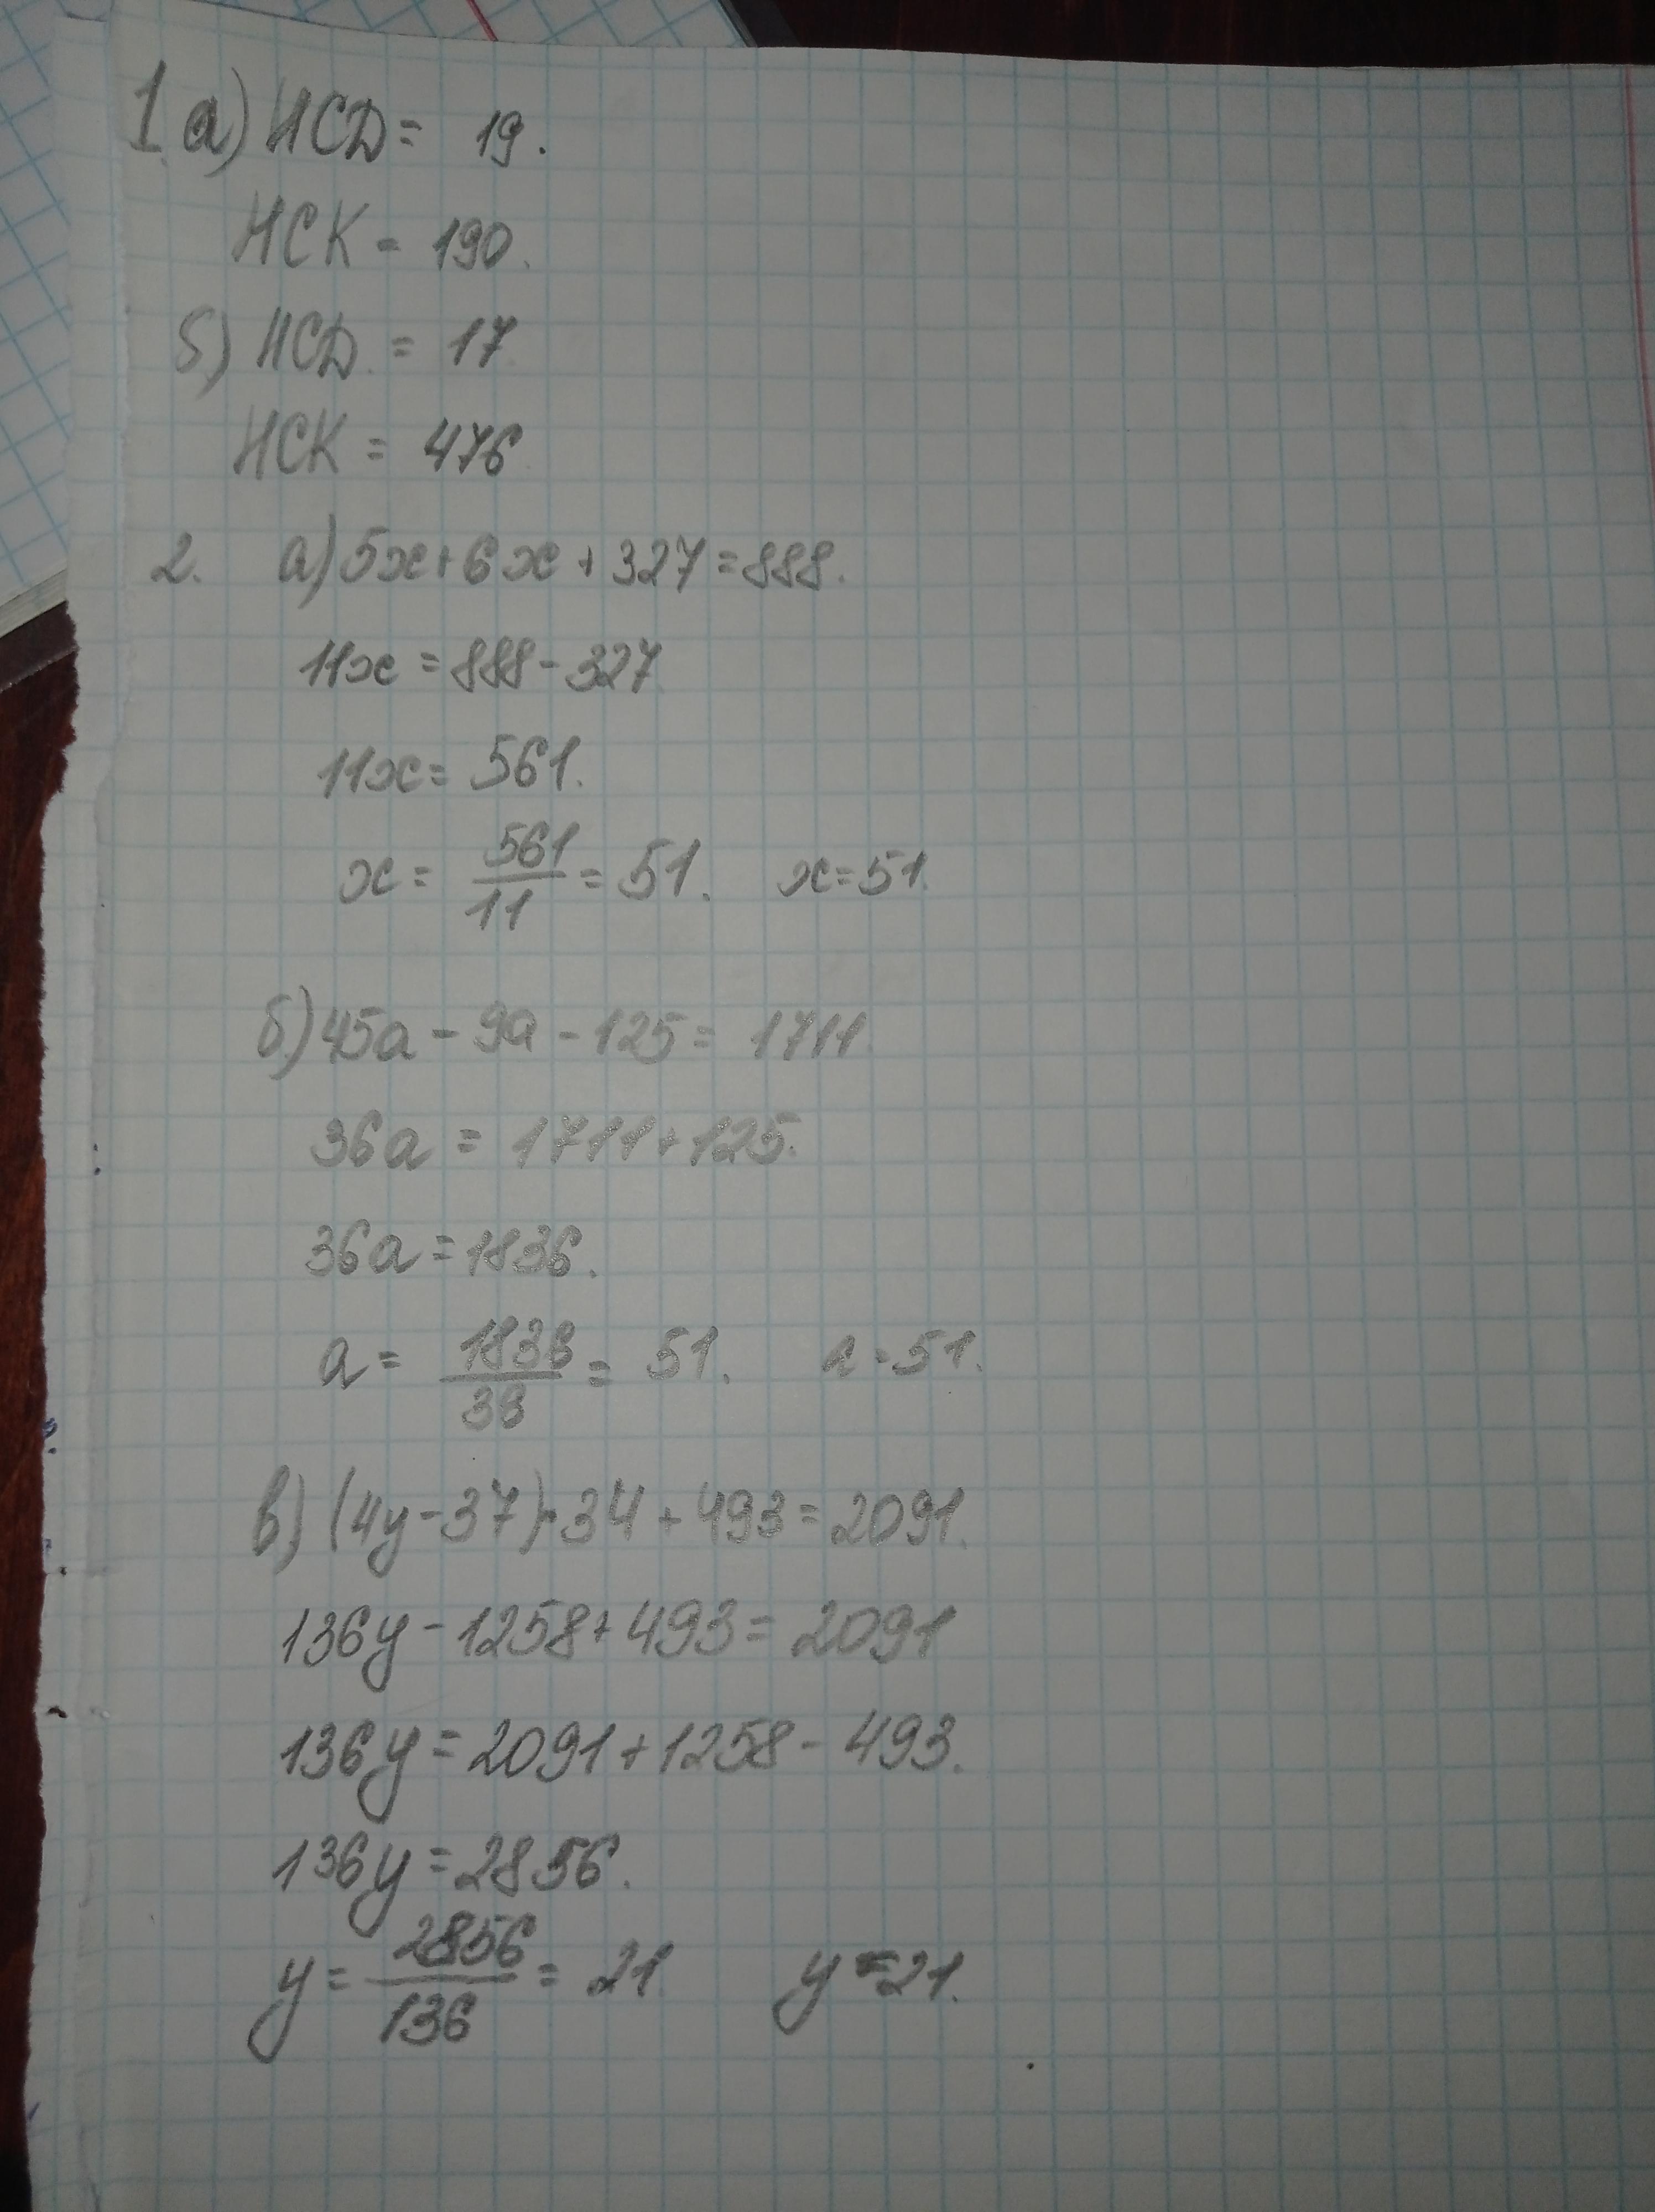 1 а) НСD = 19.
НСК = 190.
б) НСD = 17
НСК = 476
2. а) 5x + 6x + 327 = 888.
11x = 888 - 327
11x = 561.
x = 561/11 = 51. x = 51.
б) 45a - 9a - 125 = 1711.
36a = 1711 + 125.
36a = 1836.
a = 1836/36 = 51. a = 51.
в) (4y - 37) · 34 + 493 = 2091.
136y - 1258 + 493 = 2091
136y = 2091 + 1258 - 493.
136y = 2856.
y = 2856/136 = 21 y = 21.